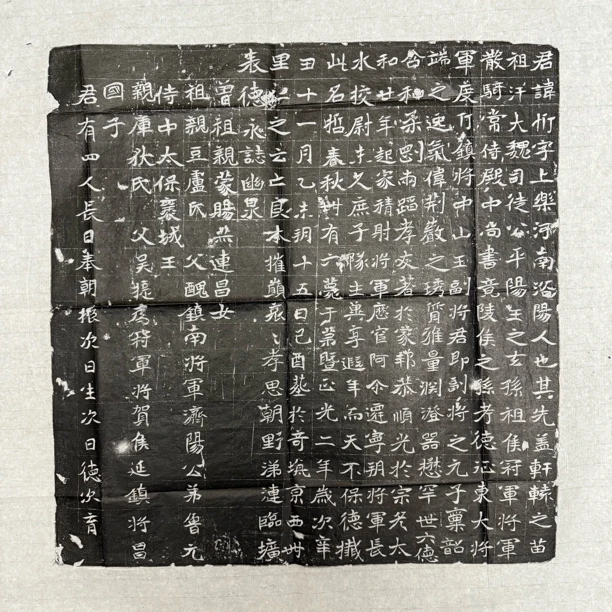 君諱忻字上樂河南洛陽人也其先盖軒轅之苗
祖汗大魏司徒公平陽王之玄孫祖侯冠軍將軍
散騎常侍殿中尚書竟陵侯之孫考德征東大將
軍度斤鎮將中山王副將君即副將之元子稟韶
端之逸氣偉荆巖之琇質雅量淵澄器懋罕世六德
含和柔思兩蹈孝友著於蒙稚恭順光於宗老太
和廿年起家積射將軍歷官阿命遷寧朔將軍長
水校尉方久庶子隊主與享遐年而天不保德攕
此名哲春秋卌有六薨于第暨正光二年歲次辛
丑十一月乙未朔十五日己酉葬於奇坑京西卅
里之云亡良木摧巔哀哀孝思朝野涕漣臨壙
表德永誌幽泉
曾祖親蒙賜燕連昌女
祖親豆盧氏 父醜鎮南將軍濟陽公弟魯元
侍中太保襄城王
親庫狄氏 父吴提鷹符軍將賀侯延鎮將昌
國子
君有四人長日奉朝振次日生次日德次育